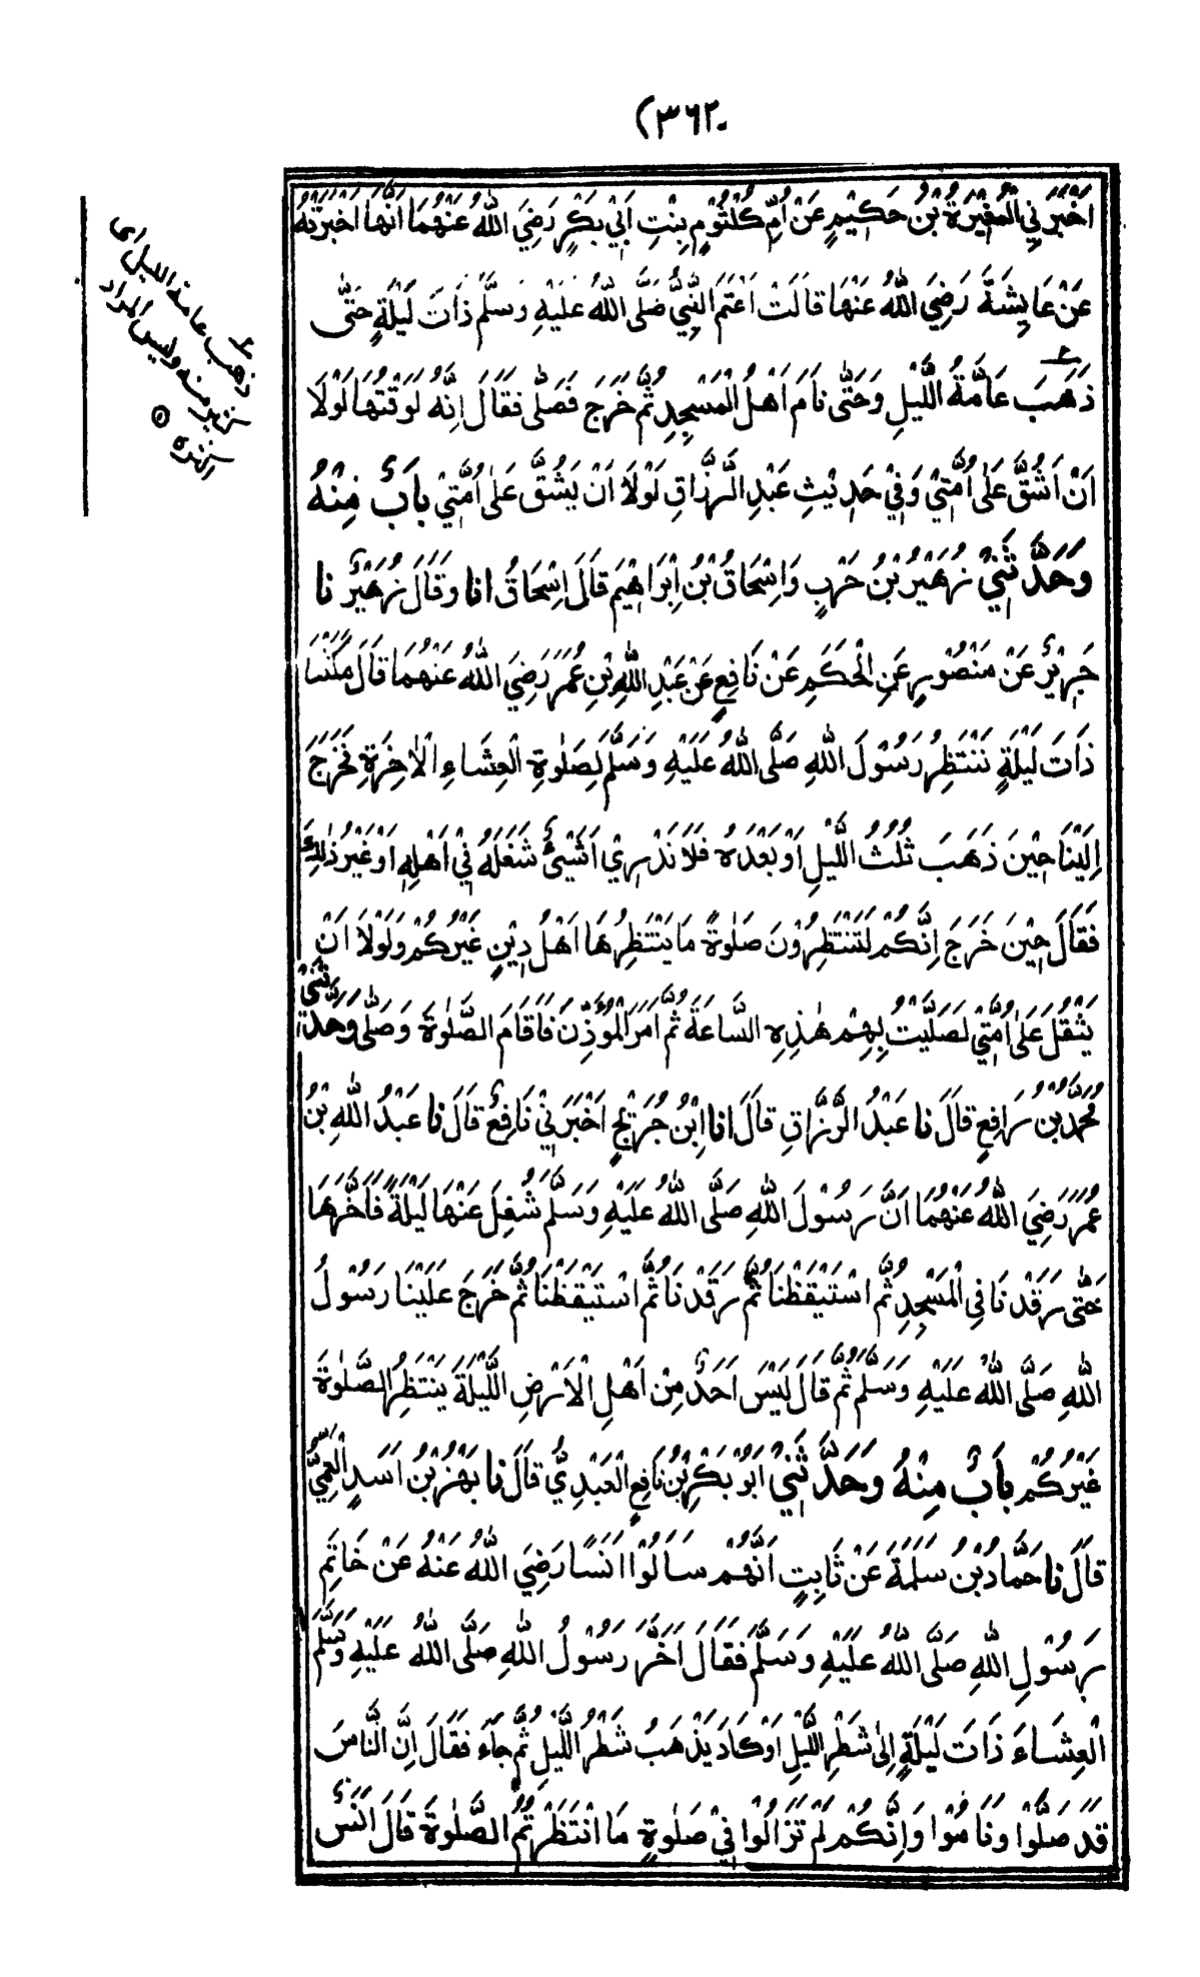 (٣٦٢٠
اَخْبَرَنِي الْمُغِيْرَةُ بْنُ حَكِيْمٍ عَنْ اُمِّ كُلْثُوْمٍ بِنْتِ اَبِيْ بَكْرٍ رَضِيَ اللهُ عَنْهُمَا اَنَّهَا اَخْبَرَتْهُ
عَنْ عَايِشَةَ رَضِيَ اللهُ عَنْهَا قَالَتْ اَعْتَمَ النَّبِيُّ صَلَّى اللهُ عَلَيْهِ وَسَلَّمَ ذَاتَ لَيْلَةٍ حَتّٰى
ذَهَبَ عَامَّةُ اللَّيْلِ وَحَتّٰى نَامَ اَهْلُ الْمَسْجِدِ ثُمَّ خَرَجَ فَصَلّٰى فَقَالَ اِنَّهُ لَوَقْتُهَا لَوْلَا
اَنْ اَشُقَّ عَلٰى اُمَّتِيْ وَفِيْ حَدِيْثِ عَبْدِ الرَّزَّاقِ لَوْلَا اَنْ يَشُقَّ عَلٰى اُمَّتِيْ بَابٌ مِنْهُ
وَحَدَّثَنِيْ زُهَيْرُ بْنُ حَرْبٍ وَاِسْحَاقُ بْنُ اِبْرَاهِيْمَ قَالَ اِسْحَاقُ انا وَقَالَ زُهَيْرٌ نا
جَرِيْرٌ عَنْ مَنْصُوْرٍ عَنِ الْحَكَمِ عَنْ نَافِعٍ عَنْ عَبْدِ اللهِ بْنِ عُمَرَ رَضِيَ اللهُ عَنْهُمَا قَالَ مَكَثْنَا
ذَاتَ لَيْلَةٍ نَنْتَظِرُ رَسُوْلَ اللهِ صَلَّى اللهُ عَلَيْهِ وَسَلَّمَ لِصَلٰوةِ الْعِشَاءِ الْاٰخِرَةِ فَخَرَجَ
اِلَيْنَا حِيْنَ ذَهَبَ ثُلُثُ اللَّيْلِ اَوْ بَعْدَهُ فَلَا نَدْرِيْ اَشَيْئٌ شَغَلَهُ فِيْ اَهْلِهِ اَوْ غَيْرُ ذٰلِكَ
فَقَالَ حِيْنَ خَرَجَ اِنَّكُمْ لَتَنْتَظِرُوْنَ صَلٰوةً مَا يَنْتَظِرُهَا اَهْلُ دِيْنٍ غَيْرُكُمْ وَلَوْلَا اَنْ
يَثْقُلَ عَلٰى اُمَّتِيْ لَصَلَّيْتُ بِهِمْ هٰذِهِ السَّاعَةَ ثُمَّ اَمَرَ الْمُؤَذِّنَ فَاَقَامَ الصَّلٰوةَ وَصَلّٰى وَحَدَّثَنِيْ
مُحَمَّدُ بْنُ رَافِعٍ قَالَ نا عَبْدُ الرَّزَّاقِ قَالَ انا ابْنُ جُرَيْجٍ اَخْبَرَنِيْ نَافِعٌ قَالَ نا عَبْدُ اللهِ بْنُ
عُمَرَ رَضِيَ اللهُ عَنْهُمَا اَنَّ رَسُوْلَ اللهِ صَلَّى اللهُ عَلَيْهِ وَسَلَّمَ شُغِلَ عَنْهَا لَيْلَةً فَاَخَّرَهَا
حَتّٰى رَقَدْنَا فِي الْمَسْجِدِ ثُمَّ اسْتَيْقَظْنَا ثُمَّ رَقَدْنَا ثُمَّ اسْتَيْقَظْنَا ثُمَّ خَرَجَ عَلَيْنَا رَسُوْلُ
اللهِ صَلَّى اللهُ عَلَيْهِ وَسَلَّمَ ثُمَّ قَالَ لَيْسَ اَحَدٌ مِنْ اَهْلِ الْاَرْضِ اللَّيْلَةَ يَنْتَظِرُ الصَّلٰوةَ
غَيْرُكُمْ بَابٌ مِنْهُ وَحَدَّثَنِيْ اَبُوْ بَكْرِ بْنُ نَافِعٍ الْعَبْدِيُّ قَالَ نا بَهْزُ بْنُ اَسَدٍ الْعَمِّيُّ
قَالَ نا حَمَّادُ بْنُ سَلَمَةَ عَنْ ثَابِتٍ اَنَّهُمْ سَاَلُوْا اَنَسًا رَضِيَ اللهُ عَنْهُ عَنْ خَاتِمِ
رَسُوْلِ اللهِ صَلَّى اللهُ عَلَيْهِ وَسَلَّمَ فَقَالَ اَخَّرَ رَسُوْلُ اللهِ صَلَّى اللهُ عَلَيْهِ وَسَلَّمَ
الْعِشَاءَ ذَاتَ لَيْلَةٍ اِلٰى شَطْرِ اللَّيْلِ اَوْ كَادَ يَذْهَبُ شَطْرُ اللَّيْلِ ثُمَّ جَاءَ فَقَالَ اِنَّ النَّاسَ
قَدْ صَلَّوْا وَنَامُوْا وَاِنَّكُمْ لَمْ تَزَالُوْا فِيْ صَلٰوةٍ مَا انْتَظَرْتُمُ الصَّلٰوةَ قَالَ اَنَسٌ
ذهب عامة الليل اى
كثير منه وليس المراد
اكثره